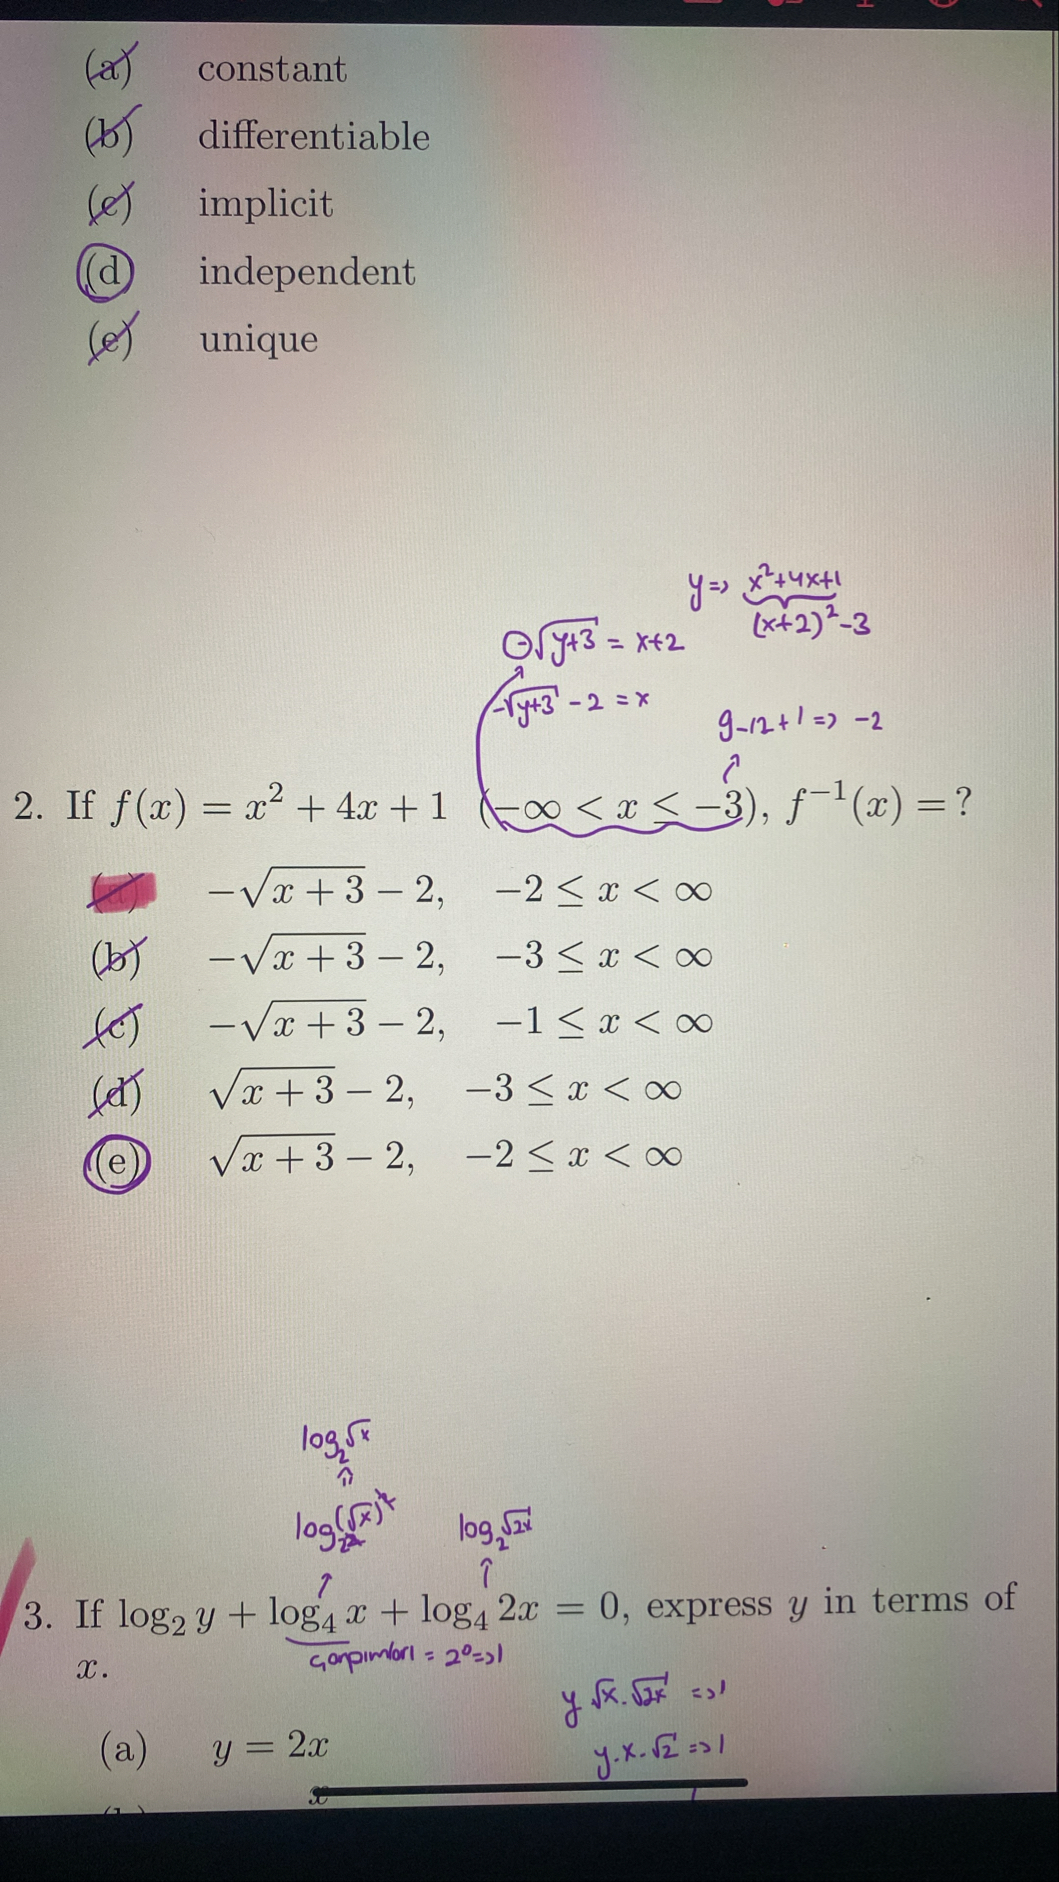 (a) constant
(b) differentiable
(c) implicit
(d) independent
(e) unique
y => x²+4x+1
(x+2)²-3
-√y+3 = x+2
-√y+3 - 2 = x
9-12+1 => -2
2. If f(x) = x² + 4x + 1 (−∞ < x ≤ −3), f⁻¹(x) = ?
(a) −√x + 3 − 2, −2 ≤ x < ∞
(b) −√x + 3 − 2, −3 ≤ x < ∞
(c) −√x + 3 − 2, −1 ≤ x < ∞
(d) √x + 3 − 2, −3 ≤ x < ∞
(e) √x + 3 − 2, −2 ≤ x < ∞
log₂√x
log (√x)² log₂√2x
3. If log₂ y + log₄ x + log₄ 2x = 0, express y in terms of
x.
çarpımları = 2⁰=>1
y √x.√2x =>1
(a) y = 2x
y.x.√2 =>1
x